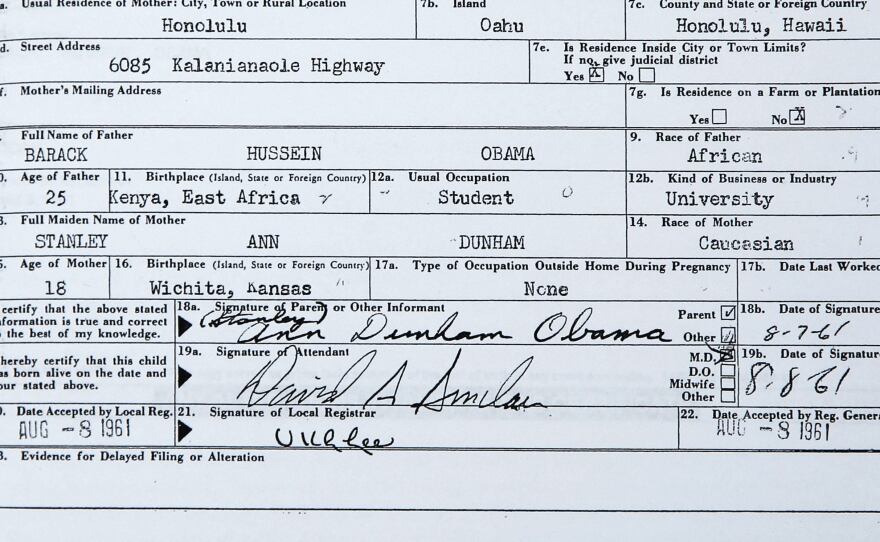 Usual Residence of Mother: City, Town or Rural Location 7b. Island 7c. County and State or Foreign Country
Honolulu Oahu Honolulu, Hawaii
d. Street Address 7e. Is Residence Inside City or Town Limits?
If no, give judicial district
6085 Kalanianaole Highway Yes X No
f. Mother's Mailing Address 7g. Is Residence on a Farm or Plantation
Yes No X
Full Name of Father 9. Race of Father
BARACK HUSSEIN OBAMA African
Age of Father 11. Birthplace (Island, State or Foreign Country) 12a. Usual Occupation 12b. Kind of Business or Industry
25 Kenya, East Africa Student University
Full Maiden Name of Mother 14. Race of Mother
STANLEY ANN DUNHAM Caucasian
Age of Mother 16. Birthplace (Island, State or Foreign Country) 17a. Type of Occupation Outside Home During Pregnancy 17b. Date Last Worked
18 Wichita, Kansas None
certify that the above stated
information is true and correct
the best of my knowledge.
18a. Signature of Parent or Other Informant
(Stanley) Ann Dunham Obama
Parent
Other
18b. Date of Signature
8-7-61
hereby certify that this child
was born alive on the date and
hour stated above.
19a. Signature of Attendant
David A Sinclair
M.D.
D.O.
Midwife
Other
19b. Date of Signature
8-8-61
Date Accepted by Local Reg. 21. Signature of Local Registrar 22. Date Accepted by Reg. General
AUG -8 1961 U K L Lee AUG -8 1961
Evidence for Delayed Filing or Alteration